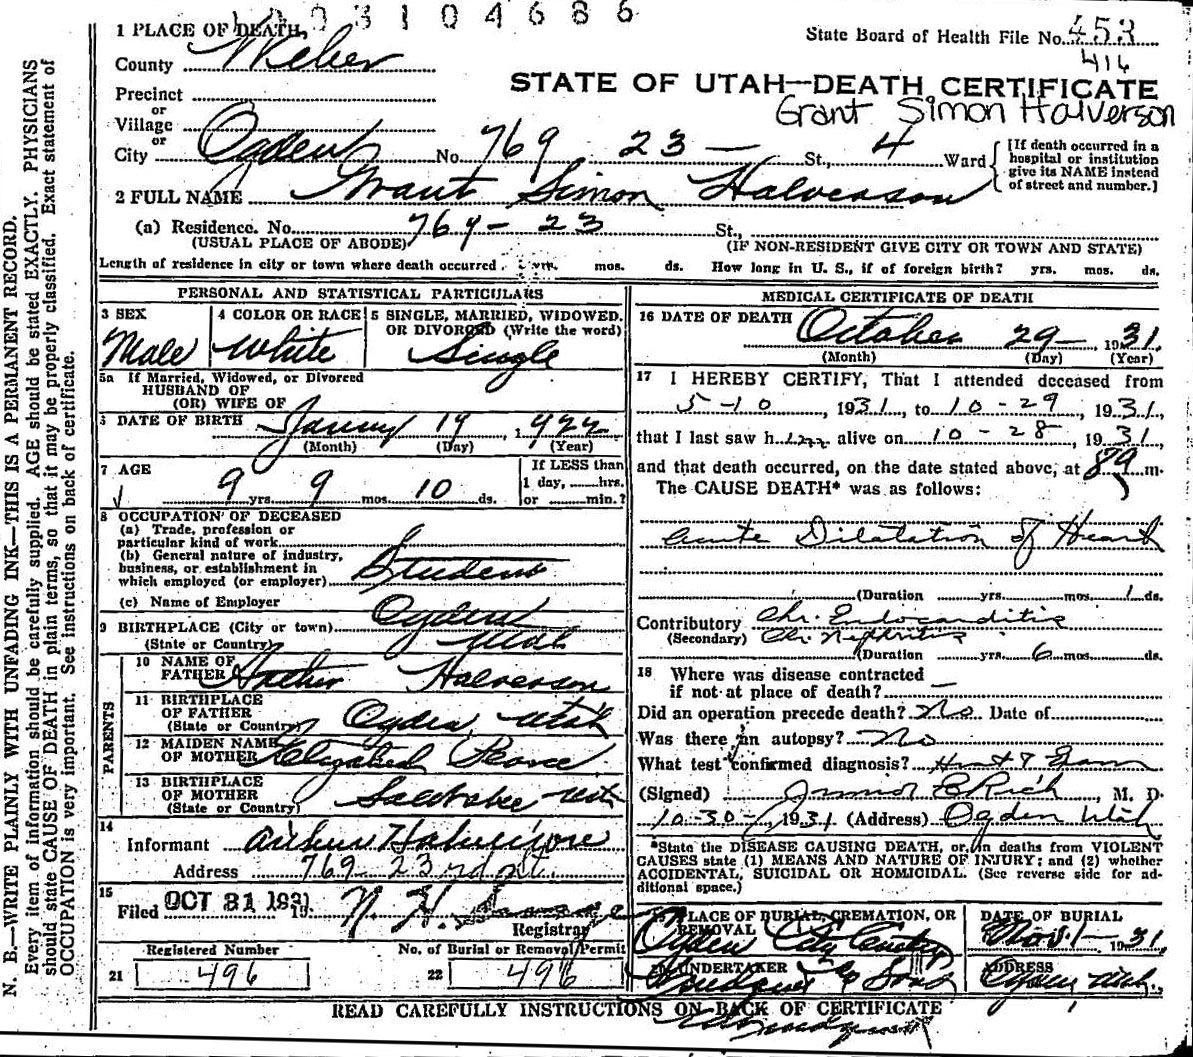 3 1 0 4 6 8 6
1 PLACE OF DEATH
State Board of Health File No. 453
416
County Weber
STATE OF UTAH—DEATH CERTIFICATE
Precinct
Grant Simon Halverson
or
Village
or
City Ogden No. 769 23 — St., 4 Ward
[If death occurred in a
hospital or institution
give its NAME instead
of street and number.]
2 FULL NAME Grant Simon Halverson
(a) Residence. No. 769 - 23 St.,
(USUAL PLACE OF ABODE)
(IF NON-RESIDENT GIVE CITY OR TOWN AND STATE)
Length of residence in city or town where death occurred yrs. mos. ds. How long in U. S., if of foreign birth? yrs. mos. ds.
PERSONAL AND STATISTICAL PARTICULARS
3 SEX
Male
4 COLOR OR RACE
White
5 SINGLE, MARRIED, WIDOWED.
OR DIVORCED (Write the word)
Single
5a If Married, Widowed, or Divorced
HUSBAND OF
(OR) WIFE OF
6 DATE OF BIRTH January 19, 1922
(Month) (Day) (Year)
7 AGE
9 yrs. 9 mos. 10 ds.
If LESS than
1 day, ......hrs.
or ......min.?
8 OCCUPATION OF DECEASED
(a) Trade, profession or
particular kind of work
(b) General nature of industry,
business, or establishment in
which employed (or employer) Student
(c) Name of Employer
9 BIRTHPLACE (City or town) Ogden
(State or Country) Utah
PARENTS
10 NAME OF
FATHER Arthur Halverson
11 BIRTHPLACE
OF FATHER
(State or Country) Ogden, Utah
12 MAIDEN NAME
OF MOTHER Elizabeth
13 BIRTHPLACE
OF MOTHER
(State or Country) Salt Lake Utah
14
Informant Arthur Halverson
Address 769 23rd st.
15
Filed OCT 31 1931 N. H.
Registrar
Registered Number
21 496
No. of Burial or Removal Permit
22 496
MEDICAL CERTIFICATE OF DEATH
16 DATE OF DEATH October 29 - 1931.
(Month) (Day) (Year)
17 I HEREBY CERTIFY, That I attended deceased from
5-10, 1931, to 10-29, 1931,
that I last saw him alive on 10-28, 1931,
and that death occurred, on the date stated above, at m.
The CAUSE DEATH* was as follows:
Acute Dilatation of Heart
(Duration yrs. mos. 1 ds.
Contributory Chr. Endocarditis
(Secondary) Chr. Nephritis
(Duration yrs. 6 mos. ds.
18 Where was disease contracted
if not at place of death? —
Did an operation precede death? No. Date of
Was there an autopsy? No
What test confirmed diagnosis?
(Signed) Junior E Rich, M. D.
10-30-, 1931 (Address) Ogden Utah
*State the DISEASE CAUSING DEATH, or, in deaths from VIOLENT
CAUSES state (1) MEANS AND NATURE OF INJURY; and (2) whether
ACCIDENTAL, SUICIDAL OR HOMICIDAL. (See reverse side for ad-
ditional space.)
19 PLACE OF BURIAL, CREMATION, OR
REMOVAL
Ogden City Cemetery
DATE OF BURIAL
Nov. 1 - 1931.
20 UNDERTAKER
& Sons
ADDRESS
Ogden, Utah.
READ CAREFULLY INSTRUCTIONS ON BACK OF CERTIFICATE
N. B.—WRITE PLAINLY WITH UNFADING INK—THIS IS A PERMANENT RECORD.
Every item of information should be carefully supplied. AGE should be stated EXACTLY. PHYSICIANS
should state CAUSE OF DEATH in plain terms, so that it may be properly classified. Exact statement of
OCCUPATION is very important. See instructions on back of certificate.